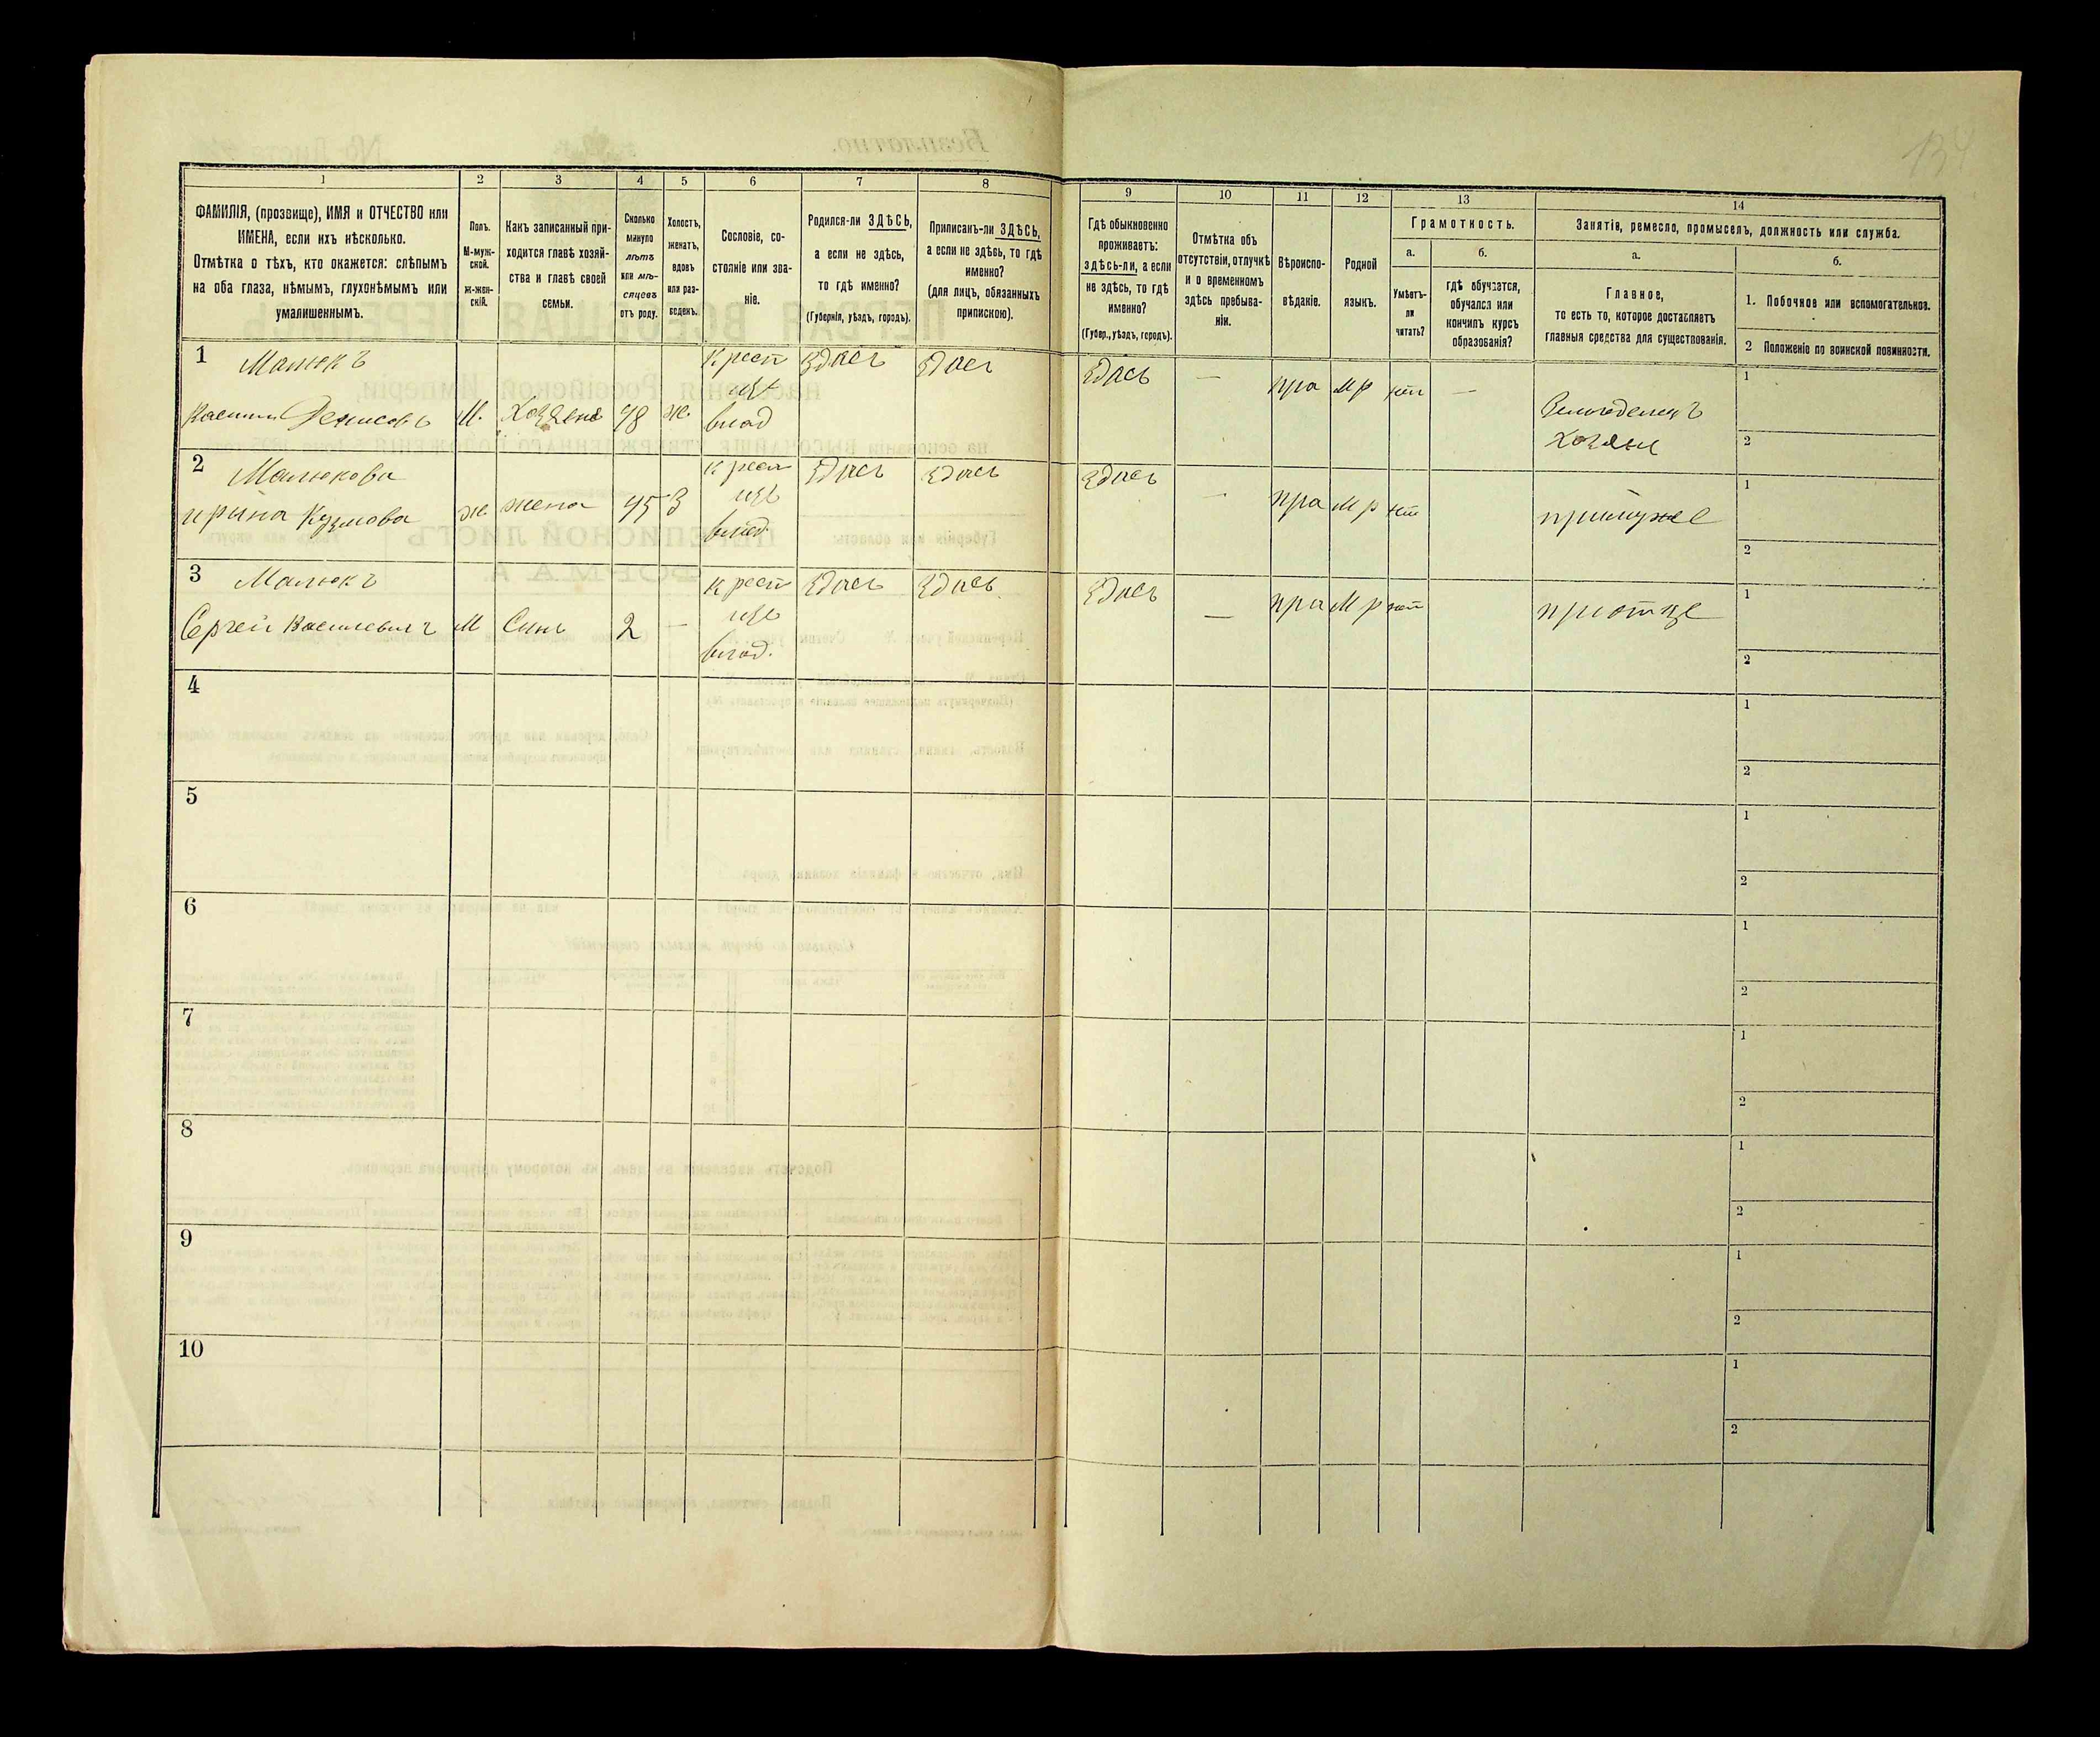 134
1
2
3
4
5
6
7
8
9
10
11
12
13
14
ФАМИЛІЯ, (прозвище), ИМЯ и ОТЧЕСТВО или
ИМЕНА, если ихъ нѣсколько.
Отмѣтка о тѣхъ, кто окажется: слѣпымъ
на оба глаза, нѣмымъ, глухонѣмымъ или
умалишеннымъ.
Полъ.
М-муж-
ской.
ж-жен-
скій.
Какъ записанный при-
ходится главѣ хозяй-
ства и главѣ своей
семьи.
Сколько
минуло
лѣтъ
или мѣ-
сяцевъ
отъ роду.
Холостъ,
женатъ,
вдовъ
или раз-
веденъ.
Сословіе, со-
стояніе или зва-
ніе.
Родился-ли ЗДѢСЬ,
а если не здѣсь,
то гдѣ именно?
(Губернія, уѣздъ, городъ).
Приписанъ-ли ЗДѢСЬ,
а если не здѣсь, то гдѣ
именно?
(для лицъ, обязанныхъ
припискою).
Гдѣ обыкновенно
проживаетъ:
здѣсь-ли, а если
не здѣсь, то гдѣ
именно?
(Губер., уѣздъ, городъ).
Отмѣтка объ
отсутствіи, отлучкѣ
и о временномъ
здѣсь пребыва-
ніи.
Вѣроиспо-
вѣданіе.
Родной
языкъ.
Грамотность.
а.
Умѣетъ-
ли
читать?
б.
гдѣ обучается,
обучался или
кончилъ курсъ
образованія?
Занятіе, ремесло, промыселъ, должность или служба.
а.
Главное,
то есть то, которое доставляетъ
главныя средства для существованія.
б.
1. Побочное или вспомогательное.
2 Положеніе по воинской повинности.
1 Малюкъ
Василий Денисовъ М. Хозяенъ 48 ж.
Крест
изъ
влад
Здась Здась Здась — пра мр нет —
Земледелецъ
Хозяен
1
2
2 Малюкова
ирина Кузмова ж. жена 45 З
крест
изъ
влад.
Здась Здась Здась — пра мр нет
примуже
1
2
3 Малюкъ
Сергей Василевичъ М Синъ 2 —
крест
изъ
влад.
Здась Здась. Здась — пра мр нет
приотце
1
2
4
1
2
5
1
2
6
1
2
7
1
2
8
1
2
9
1
2
10
1
2